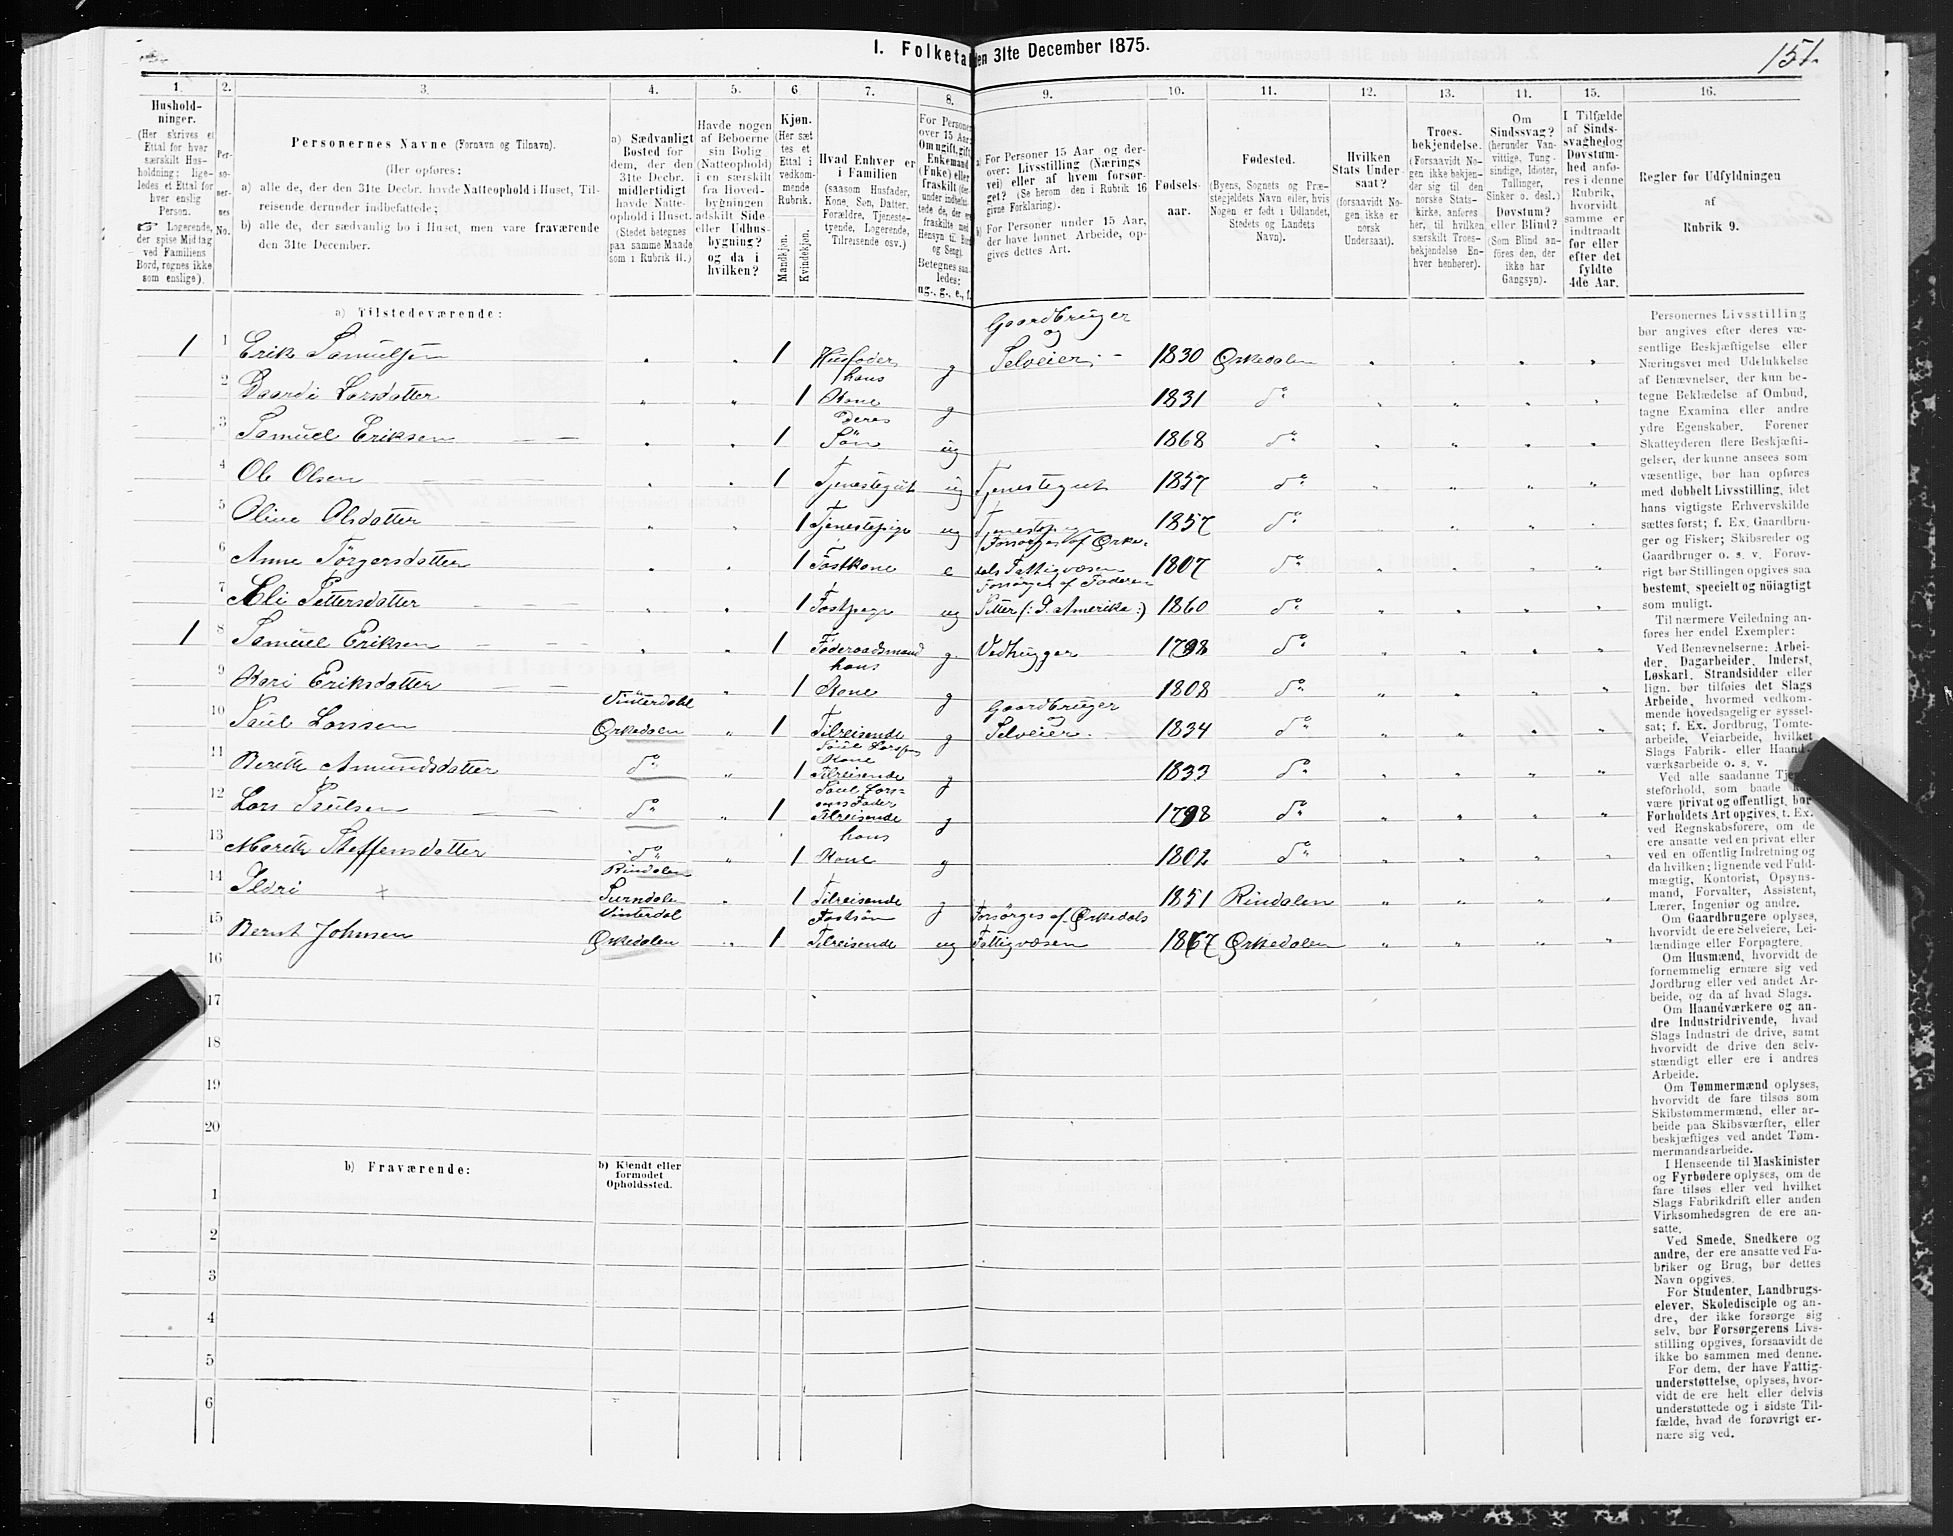 1. Folketal den 31te December 1875.
151.
1. 2. 3. 4. 5. 6. 7. 8. 9. 10. 11. 12. 13. 14. 15. 16.
Hushold-
ninger.
(Her skrives et
Ettal for hver
særskilt Hus-
holdning; lige-
ledes et Ettal for
hver enslig
Person.
☞ Logerende,
der spise Middag
ved Familiens
Bord, regnes ikke
som enslige).
Per-
so-
ner-
nes
No.
Personernes Navne (Fornavn og Tilnavn).
(Her opføres:
a) alle de, der den 31te Decbr. havde Natteophold i Huset, Til-
reisende derunder indbefattede;
b) alle de, der sædvanlig bo i Huset, men vare fraværende
den 31te December.
a) Sædvanligt
Bosted for
dem, der den
31te Decbr.
midlertidigt
havde Natte-
ophold i Huset.
(Stedet betegnes
paa samme Maade
som i Rubrik 11.)
Havde nogen
af Beboerne
sin Bolig
(Natteophold)
i en særskilt
fra Hoved-
bygningen
adskilt Side-
eller Udhus-
bygning?
og da i
hvilken?
Kjøn.
(Her sæt
tes et
Ettal i
vedkom-
mende
Rubrik.
Mandkjøn.
Kvindekjøn.
Hvad Enhver er
i Familien
(saasom Husfader,
Kone, Søn, Datter,
Forældre, Tjeneste-
tyende, Logerende,
Tilreisende osv.)
For Personer
over 15 Aar
Om ugift, gift,
Enkemand
(Enke) eller
fraskilt
Betegnes saa-
ledes:
ug., g., e., f.
a) For Personer 15 Aar og der-
over: Livsstilling (Nærings
vei) eller af hvem forsør-
get? (Se herom den i Rubrik 16
givne Forklaring).
b) For Personer under 15 Aar,
der have lønnet Arbeide, op-
gives dettes Art.
Fødsels-
aar.
Fødested.
(Byens, Sognets og Præ-
stegjeldets Navn eller, hvis
Nogen er født i Udlandet,
Stedets og Landets
Navn).
Hvilken
Stats Under-
saat?
(forsaavidt No-
gen ikke er
norsk
Undersaat).
Troes-
bekjendelse.
(Forsaavidt No-
gen ikke bekjen-
der sig til den
norske Stats-
kirke, anføres
her, til hvilken
særskilt Troes-
bekjendelse En-
hver henhører).
Om
Sindssvag?
(herunder Van-
vittige, Tung-
sindige, Idioter,
Tullinger,
Sinker o. desl.)
Døvstum?
eller Blind?
(Som Blind an-
føres den, der
ikke har
Gangsyn).
I Tilfælde
af Sinds-
svaghed og
Døvstum-
hed anfø-
res i denne
Rubrik,
hvorvidt
samme er
indtraadt
før eller
efter det
fyldte
4de Aar.
Regler for Udfyldningen
af
Rubrik 9.
a) Tilstedeværende:
Gaardbruger
og
1 1 Erik Samuelsen " " 1 Husfader g Selveier. 1830 Ørkedalen " " " "
hans
2 Baardi Larsdatter " " 1 Kone g 1831 do " " " "
Deres
3 Samuel Eriksen " " 1 Søn ug 1868 do " " " "
4 Ole Olsen " " 1 Tjenestegut ug Tjenestegut 1857 do " " " "
5 Oline Olsdatter " " 1 Tjenestepige ug Tjenestepige 1857 do " " " "
Forsørges af Ørke-
6 Anne Törgersdatter " " 1 Fostkone e dals Fattigvæsen 1807 do " " " "
Forsørget af Faderen
7 Eli Pettersdatter " " 1 Fostpige ug Petter (: I Amerika :) 1860 do " " " "
1 8 Samuel Eriksen " " 1 Føderaadsmand g. Vedhugger 1798 do " " " "
hans
9 Kari Eriksdatter " " 1 Kone g 1808 do " " " "
Vinterdahl Gaardbruger
og
10 Paul Larssen Ørkedalen 1 Tilreisende g Selveier 1834 do " " " "
Paul Larssens
Kone
11 Berith Amundsdatter do " 1 Tilreisende g 1833 do " " " "
Paul Lars-
sens Fader
12 Lars Paulsen do " 1 Tilreisende g 1798 do " " " "
hans
13 Marith Steffensdatter do " 1 Kone g 1802 do " " " "
Rindalen
14 Ildri + Surndale " 1 Tilreisende g 1851 Rindalen " " " "
Vinterdal Fostsøn Forsørges af Ørkedals
15 Bernt Johnsen Ørkedalen " 1 Tilreisende ug Fattigvæsen 1867 Ørkedalen " " " "
16
17
18
19
20
b) Fraværende:
b) Kjendt eller
formodet
Opholdssted.
1
2
3
4
5
6
Personernes Livsstilling
bør angives efter deres væ-
sentlige Beskjæftigelse eller
Næringsvei med Udelukkelse
af Benævnelser, der kun be-
tegne Beklædelse af Ombud,
tagne Examina eller andre
ydre Egenskaber. Forener
Skatteyderen flere Beskjæfti-
gelser, der kunne ansees som
væsentlige, bør han opføres
med dobbelt Livsstilling, idet
hans vigtigste Erhvervskilde
sættes først; f. Ex. Gaardbru-
ger og Fisker; Skibsreder og
Gaardbruger o. s. v. Forøv-
rigt bør Stillingen opgives saa
bestemt, specielt og nöiagtigt
som muligt.
Til nærmere Veiledning an-
føres her endel Exempler:
Ved Benævnelserne: Arbei-
der, Dagarbeider, Inderst,
Løskarl, Strandsidder eller
lign. bør tilføies det Slags
Arbeide, hvormed vedkom-
mende hovedsagelig er syssel-
sat; f. Ex. Jordbrug, Tomte-
arbeide, Veiarbeide, hvilket
Slags Fabrik- eller Haand-
værksarbeide o. s. v.
Ved alle saadanne Tje-
steforhold, som baade
være privat og offentligt, bør
Forholdets Art opgives, t. Ex.
ved Regnskabsførere, om de
ere ansatte ved en privat eller
ved en offentlig Indretning og
da hvilken; lignende ved Fuld-
mægtig, Kontorist, Opsyns-
mand, Forvalter, Assistent,
Lærer, Ingeniør og andre.
Om Gaardbrugere oplyses,
hvorvidt de ere Selveiere, Lei-
lændinge eller Forpagtere.
Om Husmænd, hvorvidt de
fornemmelig ernære sig ved
Jordbrug eller ved andet Ar-
beide, og da af hvad Slags.
Om Haandværkere og an-
dre Industridrivende, hvad
Slags Industri de drive, samt
hvorvidt de drive den selv-
stændigt eller ere i andres
Arbeide.
Om Tømmermænd oplyses,
hvorvidt de fare tilsøs som
Skibstømmermænd, eller ar-
beide paa Skibsværfter, eller
beskjæftiges ved andet Tøm-
mermandsarbeide.
I Henseende til Maskinister
og Fyrbødere oplyses, om de
fare tilsøs eller ved hvilket
Slags Fabrikdrift eller anden
Virksomhedsgren de ere an-
satte.
Ved Smede, Snedkere og
andre, der ere ansatte ved Fa-
briker og Brug, bør dettes
Navn opgives.
For Studenter, Landbrugs-
elever, Skoledisciple og an-
dre, der ikke forsørge sig
selv, bør Forsørgerens Livs-
stilling opgives, forsaavidt de
ikke bo sammen med denne.
For dem, der have Fattig-
understøttelse, oplyses, hvor-
vidt de ere helt eller delvis
understøttede og i sidste Til-
fælde, hvad de forøvrigt er-
nære sig ved.